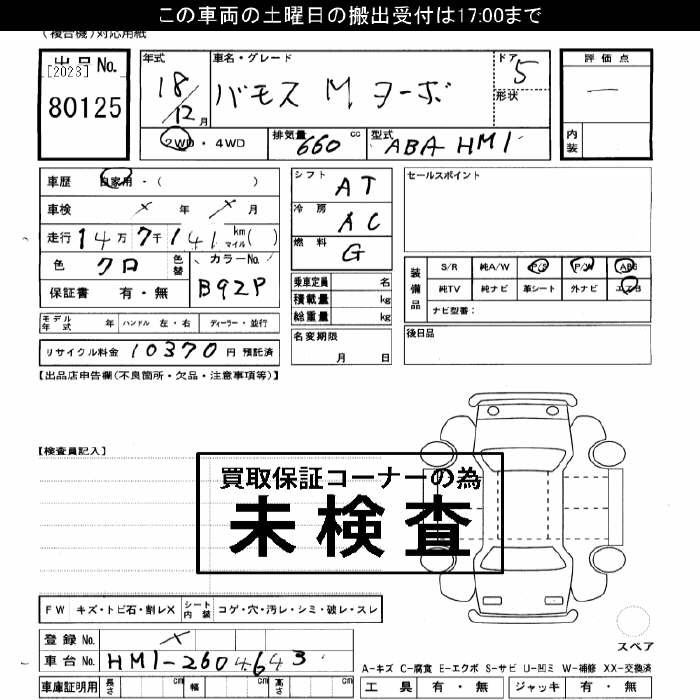 この車両の土曜日の搬出受付は17:00まで
(複合機)対応用紙
出品No.
[2023]
80125
年式 18/12月
車名・グレード バモス M ターボ
ドア 5
形状
評価点 一
内装
2WD・4WD
排気量 660 cc
型式 ABA HM1
車歴 自家用・( )
車検 × 年 × 月
走行 14万 7千 141 km マイル ( )
色 クロ 色替
カラーNo. B92P
保証書 有・無
シフト AT
冷房 AC
燃料 G
乗車定員 名
積載量 kg
総重量 kg
セールスポイント
装備品
S/R 純A/W P/S P/W ABS
純TV 純ナビ 革シート 外ナビ エアB
ナビ型番:
モデル年式 年 ハンドル 左・右 ディーラー・並行
名変期限 月 日
後日品
リサイクル料金 10370 円 預託済
【出品店申告欄(不良箇所・欠品・注意事項等)】
【検査員記入】
買取保証コーナーの為
未検査
FW キズ・トビ石・割レX シート内装 コゲ・穴・汚レ・シミ・破レ・スレ
登録No. ×
車台No. HM1-2604643
スペア
A-キズ C-腐食 E-エクボ S-サビ U-凹ミ W-補修 XX-交換済
車庫証明用 長さ cm 幅 cm 高さ cm
工具 有・無 ジャッキ 有・無